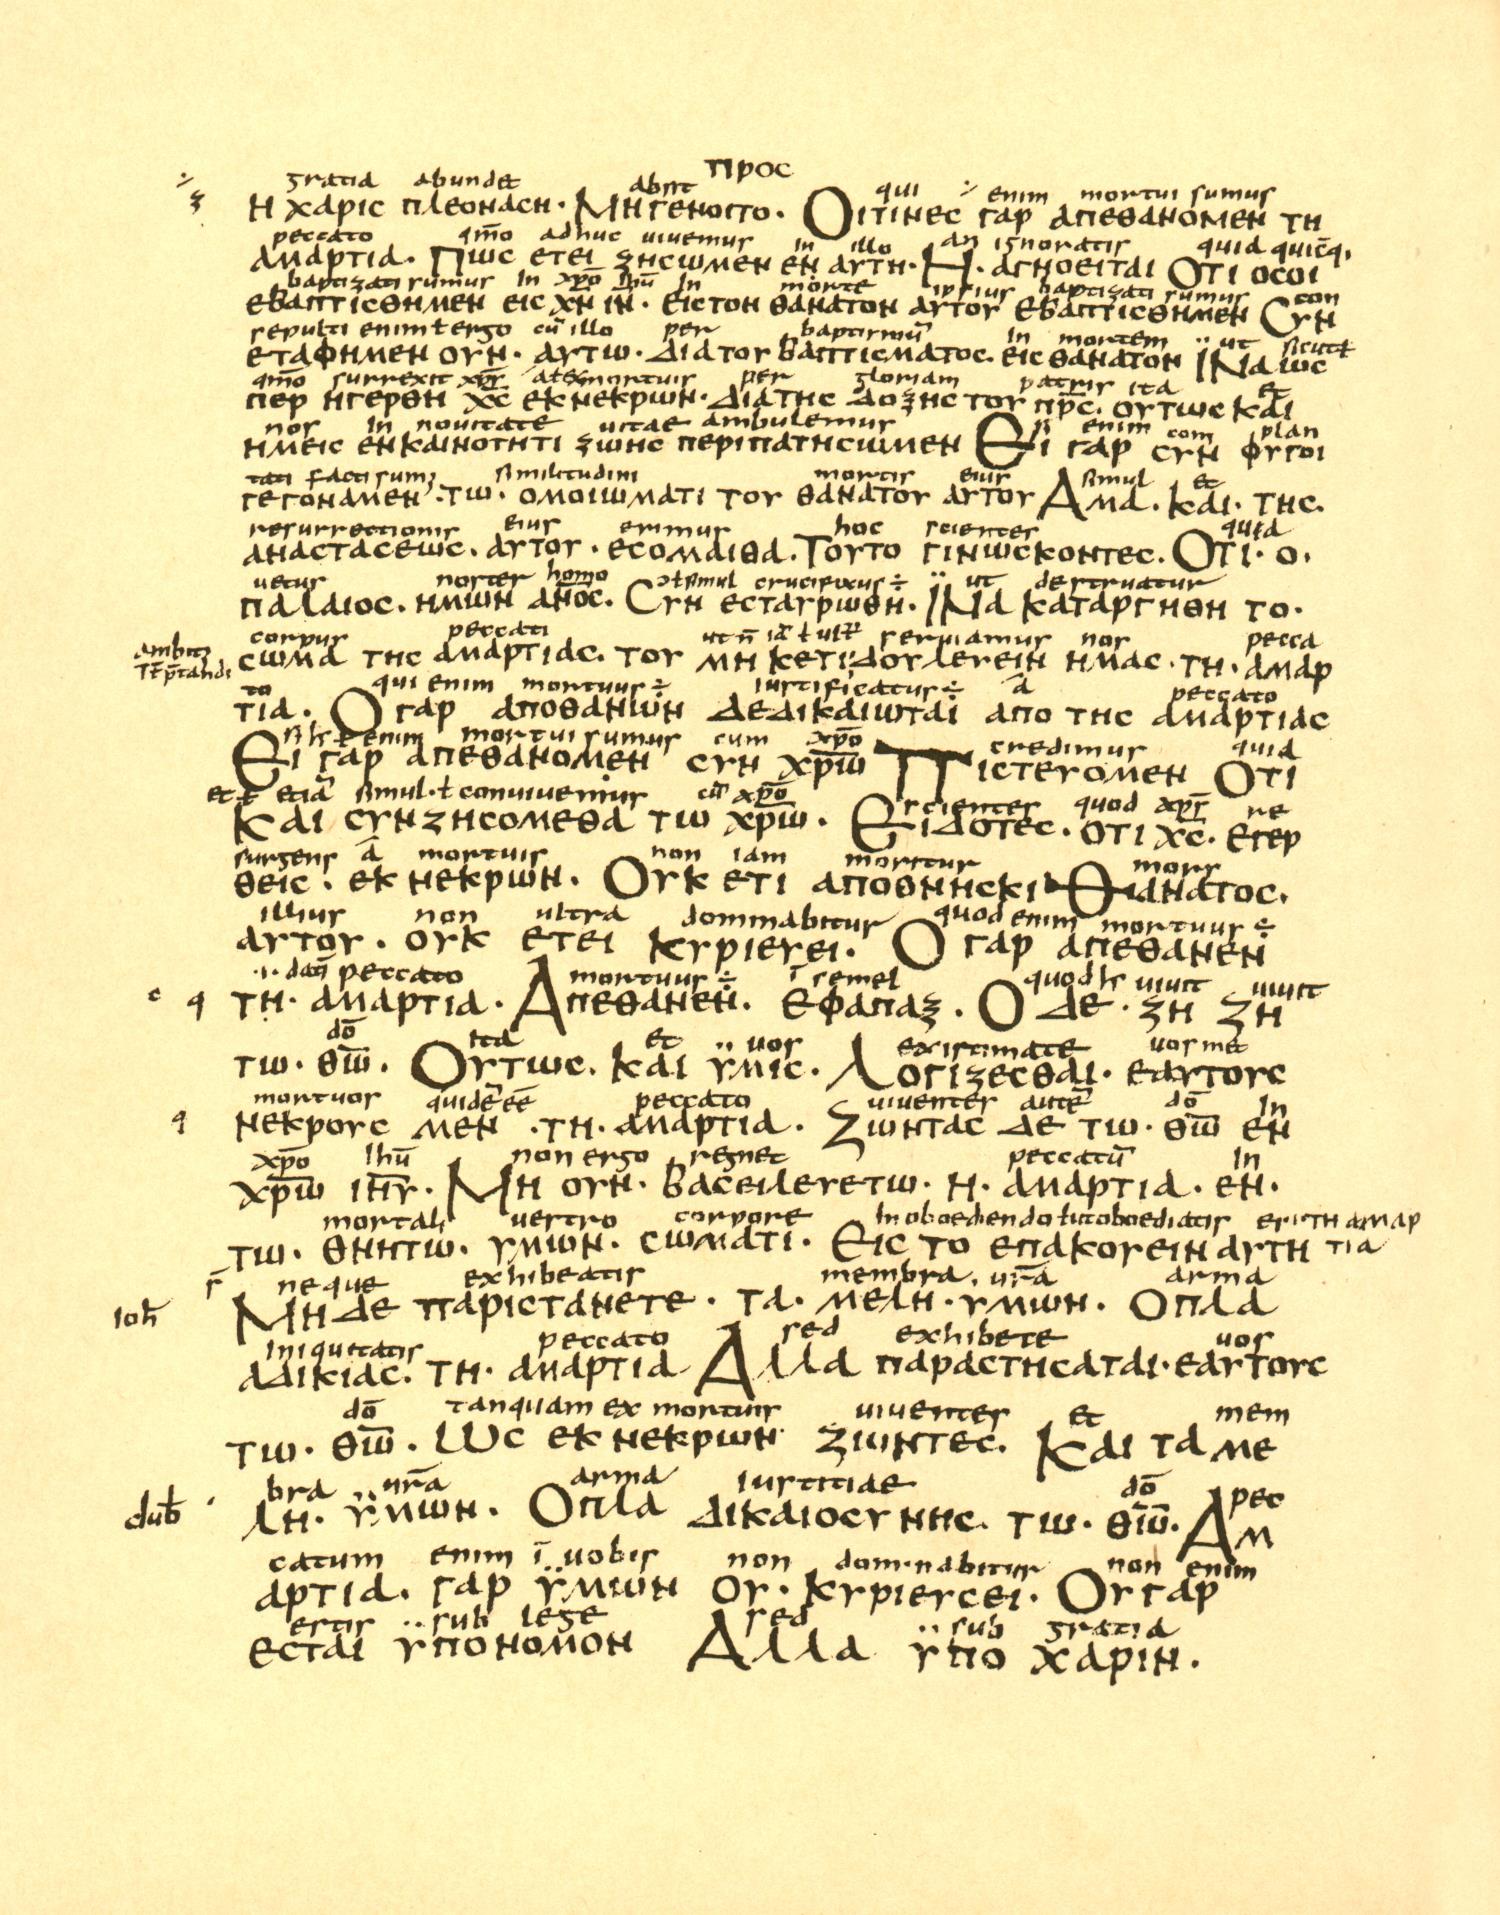 προς
gratia abundet abṡit qui enim mortui sumus
η χαρις πλεοναση· Μηγενοιτο· Οιτινες γαρ απεθανομεν τη
peccato qm̅o adhuc uiuemus in illo an ignoratis quia quicq,
αμαρτια· Πως ετει ζησωμεν εν αυτη· Η· αγνοειται Οτι οσοι
baptizati sumus in xp̅o ih̅u in morte ipsius baptizati sumus con
εβαπτισθημεν εις χν ιν· εις τον θανατον αυτου εβαπτισθημεν Cυν
sepulti enim ł ergo cū illo per baptismū in mortem ut sicut
εταφημεν ουν· αυτω· δια του βαπτισματος· εις θανατον ΙΝα ως
qm̅o surrexit xp̅s a ł ex mortuis per gloriam patris ita et
περ ηγερθη χς εκ νεκρων· δια της δοξης του πρ̅ς· ουτως και
nos in nouitate uitae ambulemus si enim com plan
ημεις εν καινοτητι ζωης περιπατησωμεν Ει γαρ συν φυτοι
tati facti sum; similitudini mortis eius simul et
γεγοναμεν· τω· ομοιωματι του θανατου αυτου Αμα· και· της·
resurrectionis eius erimus hoc scientes quia
αναστασεως· αυτου· εσομαιθα· Τουτο γινωσκοντες· Οτι· ο·
uetus noster homo simul crucifixus ÷ ut destruatur
παλαιος· ημων αν̅ος· Cυν εσταυρωθη· ΙΝα καταργηθη το·
corpus peccati seruiamus nos pecca
σωμα της αμαρτιας· του μηκετι δουλευειν ημας· τη· αμαρ
to qui enim mortuus ÷ iustificatus ÷ ā peccato
τια· Ο γαρ αποθανων δεδικαιωται απο της αμαρτιας
enim mortui sumus cum xp̅o credimus quia
Ει γαρ απεθανομεν συν χρ̅ω Πιστευομεν Οτι
etiā simul · ł conuiuemus cū xp̅o scientes quod xp̅s re
και συνζησομεθα τω χρ̅ω· Ειδοτες· οτι χς· εγερ
surgens ā mortuis non iam moritur mors
θεις· εκ νεκρων· Ουκ ετι αποθνησκι Θανατος·
illius non ultra dominabitur quod enim mortuus ÷
αυτου· ουκ ετει κυριευει· Ο γαρ απεθανεν
peccato mortuus ÷ semel quod uiuit uiuit
c q τη· αμαρτια· Απεθανεν· εφαπαξ· Ο δε· ζη ζη
do̅ ita et uos existimate uosmet
τω· θω̅· Ουτως· και ϋμις· Λογιζεσθαι· εαυτους
mortuos quidē ēē peccato uiuentes autē do̅ in
q νεκρους μεν · τη· αμαρτια· Ζωντας δε τω· θω̅ εν
xp̅o ih̅u non ergo regnet peccatū in
χρ̅ω ιη̅υ· Μη ουν· βασειλευετω· η· αμαρτια· εν·
mortali uestro corpore in oboediendo ł ut oboediatis
τω· θνητω· υμων· σωματι· Εις το επακουειν αυτη τια
neque exhibeatis membra· ur̅a arma
Ioh̅ Μηδε παριστανετε· τα· μελη· υμων· οπλα
iniquitatis peccato sed exhibete uos
αδικιας· τη· αμαρτια Αλλα παραστησαται· εαυτους
do̅ tanquam ex mortuis uiuentes et mem
τω· θω̅· Ως εκ νεκρων ζωντες· Και τα με
bra ur̅a arma iustitiae do̅ pec
dub̅ λη· ϋμων· Οπλα δικαιοσυνης· τω· θω̅· Αμ
catum enim ī uobis non dominabitur non enim
αρτια· γαρ ϋμων ου· κυριευσει· Ου γαρ
estis sub lege sed sub gratia
εσται ϋπο νομον Αλλα ϋπο χαριν·